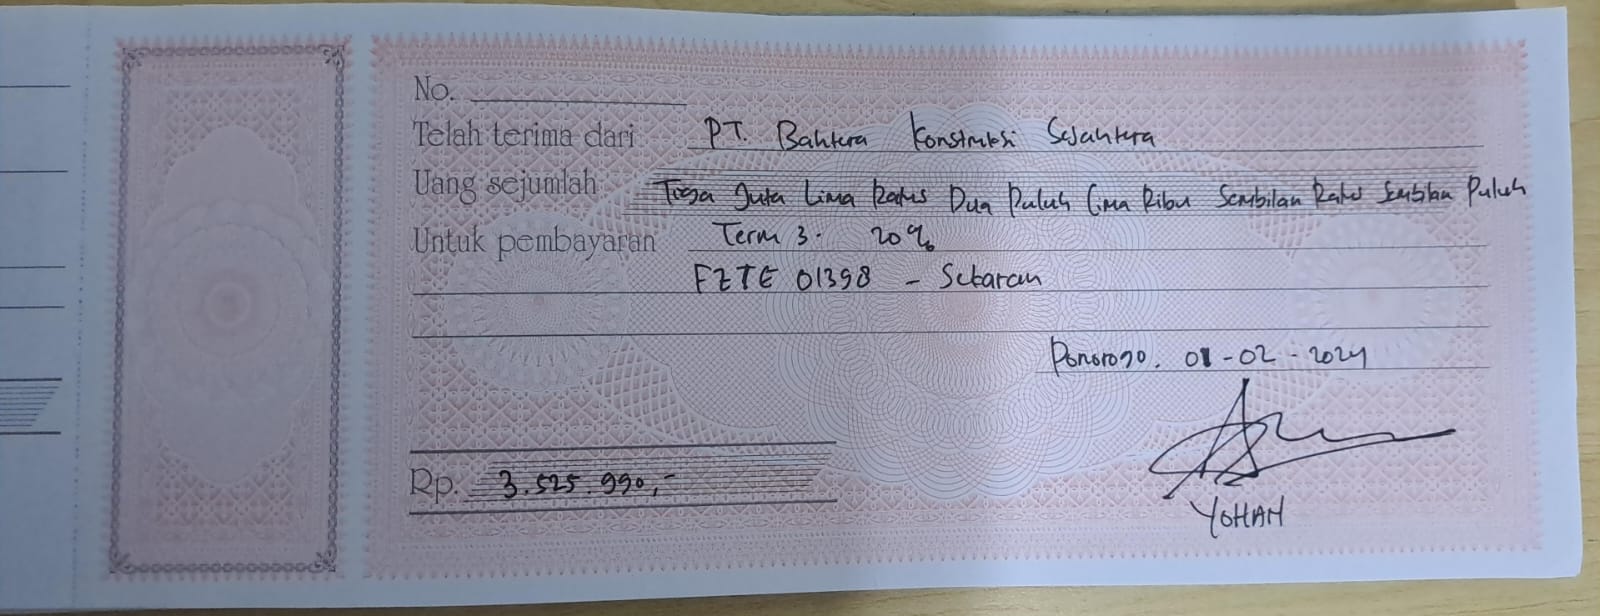 No.
Telah terima dari PT. Bahtera Konstruksi Sejahtera
Uang sejumlah Tiga Juta Lima Ratus Dua Puluh Lima Ribu Sembilan Ratus Sembilan Puluh
Untuk pembayaran Term 3. 20%
FZTE 01398 - Sebaran
Ponorogo. 01-02-2024
Rp. 3.525.990,-
YOHAN